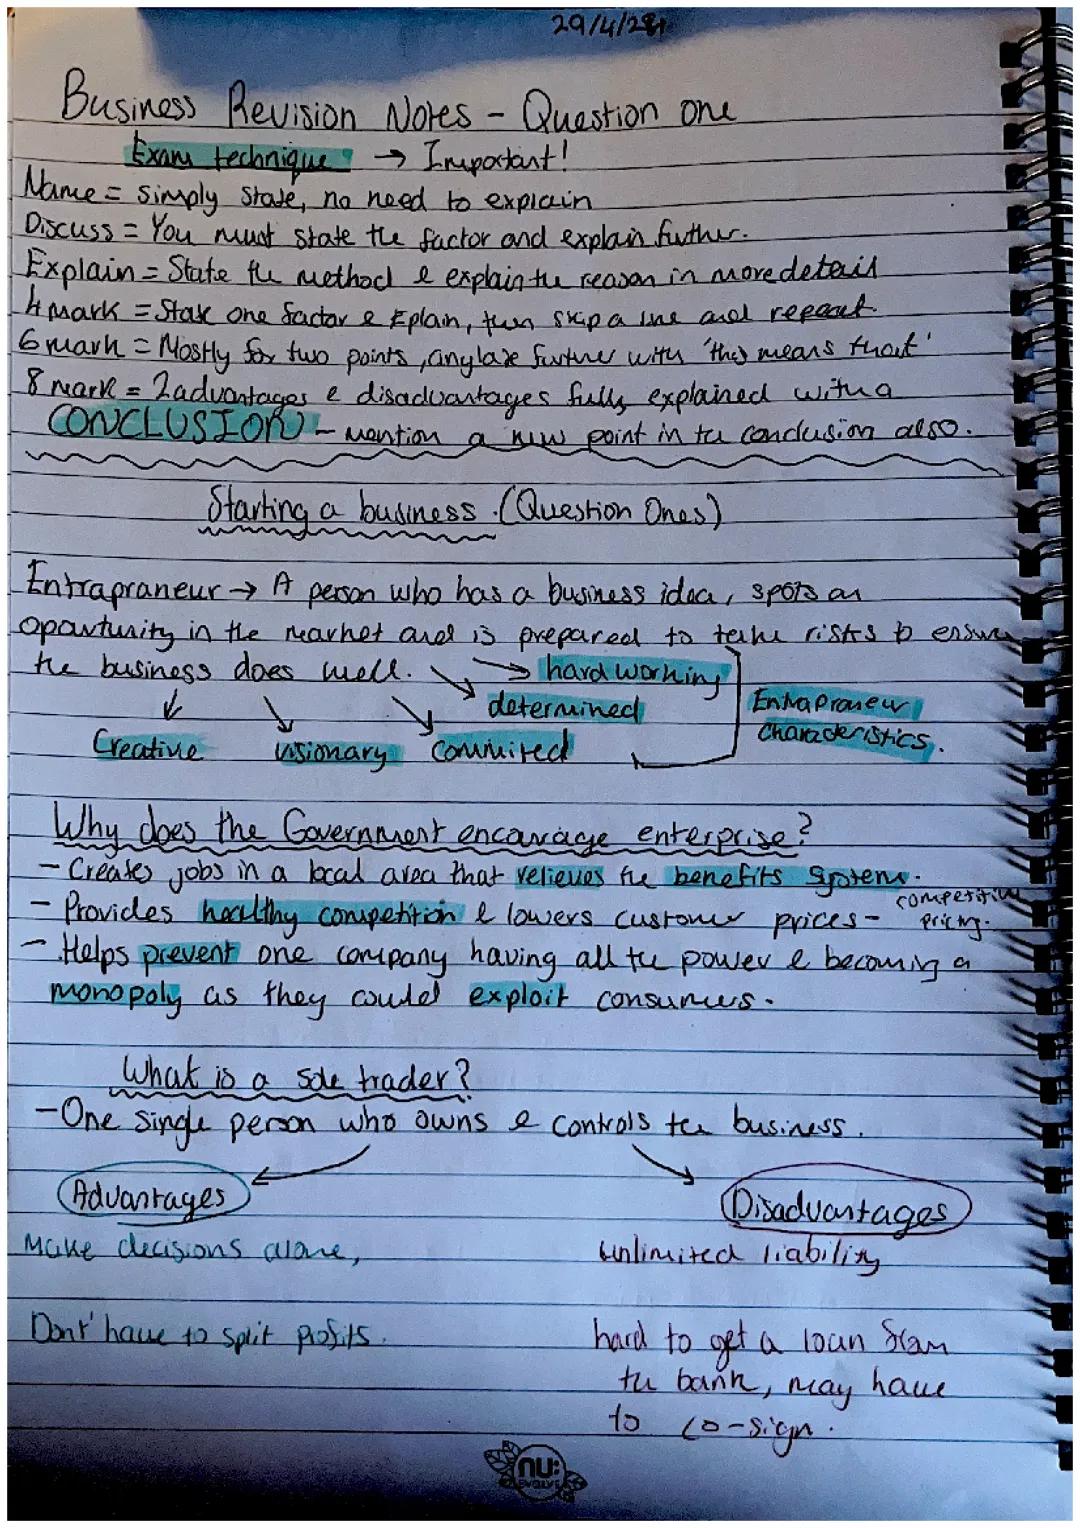 29/4/24
Business Revision Notes - Question one
Exam technique → Important!
Name = simply state, no need to explain
Discuss = You must state the factor and explain further.
Explain = State the method & explain the reason in more detail
4 mark = State one factor & Eplain, then skip a line and repeat.
6 mark = Mostly for two points, anylase further with 'this means that'
8 mark = 2 advantages & disadvantages fully explained with a
CONCLUSION - mention a new point in the conclusion also.
Starting a business. (Question Ones)
Entrapraneur → A person who has a business idea, spots an
oparturnity in the market and is prepared to take risks to ensure
the business does well. → hard working
determined
Entrapraneur
Characteristics.
Creative visionary Commited
Why does the Government encourage enterprise?
- Creates jobs in a local area that relieves the benefits system.
- Provides healthy competition & lowers customer prices - competitive
pricing.
- Helps prevent one company having all the power & becoming a
monopoly as they could exploit consumers.
What is a sole trader?
- One single person who owns & controls the business.
Advantages Disadvantages
Make decisions alone, unlimited liability
Dont' have to split profits. hard to get a loan from
the bank, may have
to co-sign.
nu:
EVOLVE